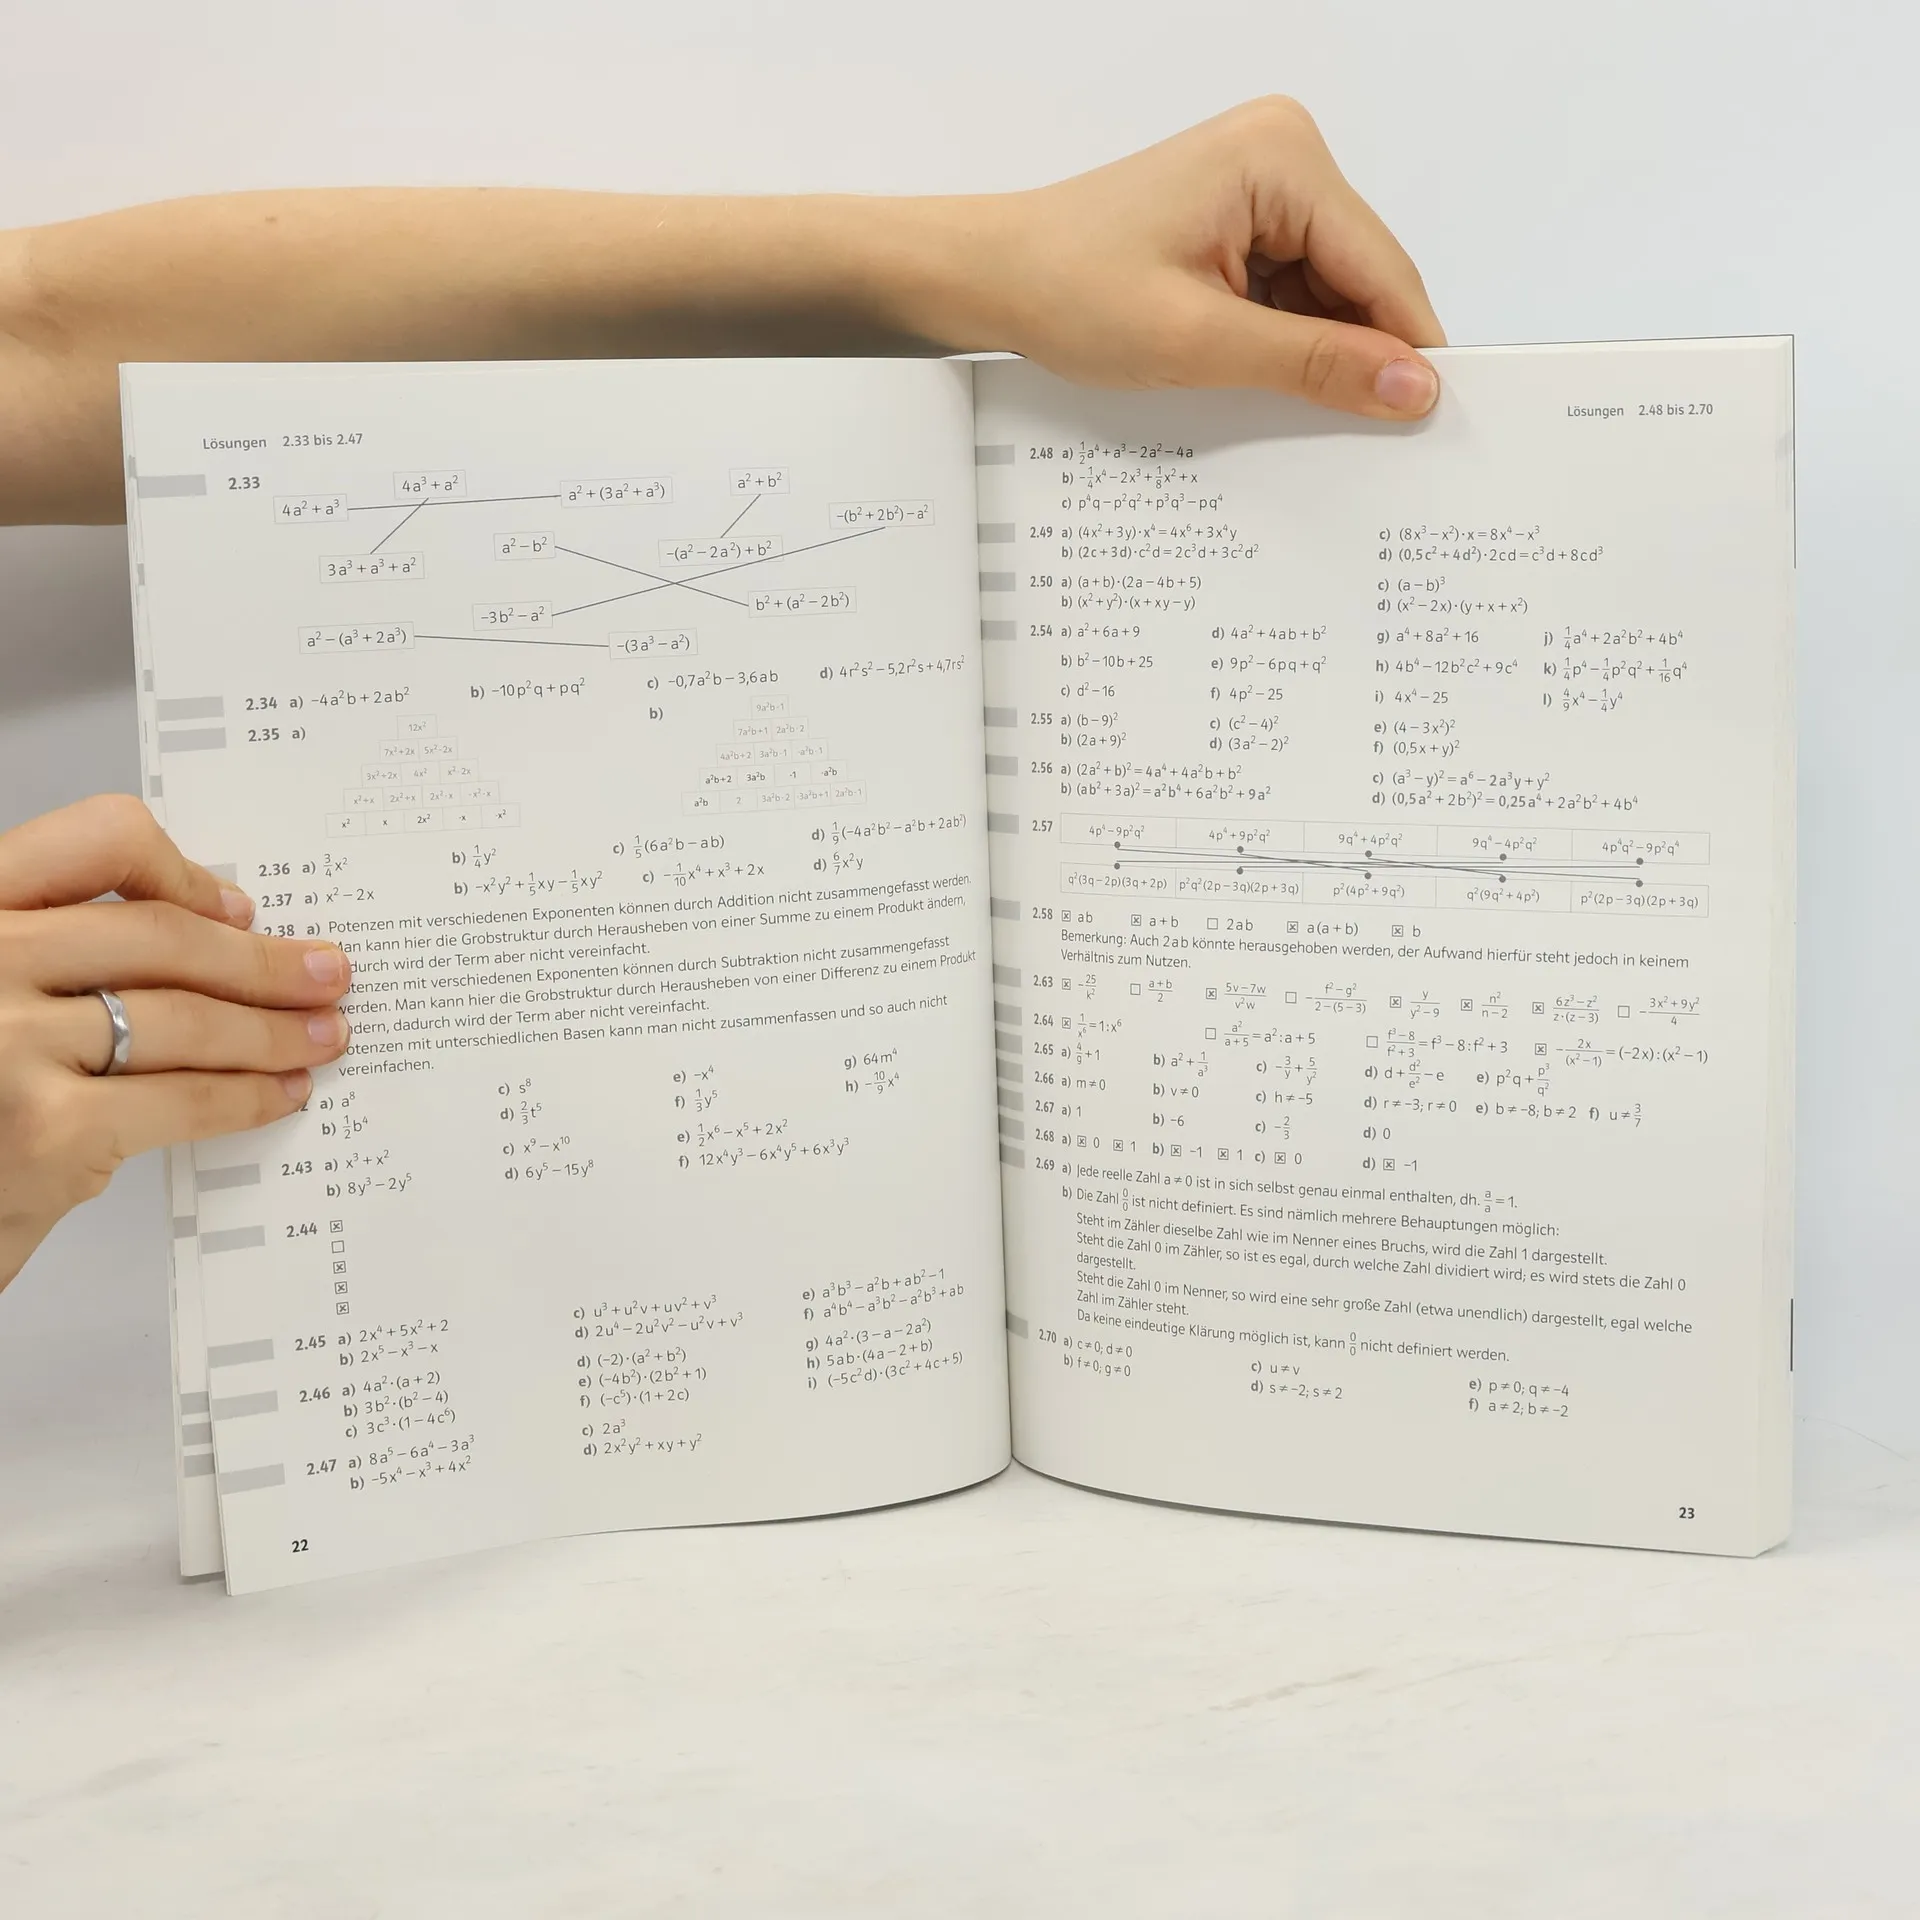 Lösungen 2.33 bis 2.47
2.33
4a³ + a²
a² + b²
4a² + a³
a² + (3a² + a³)
-(b² + 2b²) – a²
a² – b²
-(a² – 2a²) + b²
3a³ + a³ + a²
b² + (a² – 2b²)
-3b² – a²
a² – (a³ + 2a³)
-(3a³ – a²)
2.34 a) -4a²b + 2ab² b) -10p²q + pq² c) -0,7a²b – 3,6ab d) 4r²s² – 5,2r²s + 4,7rs²
2.35 a) b)
12x²
7x²+2x 5x²-2x
3x²+2x 4x² x²-2x
x²+x 2x²+x 2x²-x -x²-x
x² x 2x² -x -x²
9a²b-1
7a²b+1 2a²b-2
4a²b+2 3a²b-1 -a²b-1
a²b+2 3a²b -1 -a²b
a²b 2 3a²b-2 -3a²b+1 2a²b-1
2.36 a) 3/4 x² b) 1/4 y² c) 1/5 (6a²b – ab) d) 1/9 (-4a²b² – a²b + 2ab²)
2.37 a) x² – 2x b) -x²y² + 1/5 xy – 1/5 xy² c) -1/10 x⁴ + x³ + 2x d) 6/7 x²y
2.38 a) Potenzen mit verschiedenen Exponenten können durch Addition nicht zusammengefasst werden.
Man kann hier die Grobstruktur durch Herausheben von einer Summe zu einem Produkt ändern,
durch wird der Term aber nicht vereinfacht.
tenzen mit verschiedenen Exponenten können durch Subtraktion nicht zusammengefasst
werden. Man kann hier die Grobstruktur durch Herausheben von einer Differenz zu einem Produkt
ndern, dadurch wird der Term aber nicht vereinfacht.
otenzen mit unterschiedlichen Basen kann man nicht zusammenfassen und so auch nicht
vereinfachen.
a) a⁸ c) s⁸ e) -x⁴ g) 64m⁴
b) 1/2 b⁴ d) 2/3 t⁵ f) 1/3 y⁵ h) -10/9 x⁴
2.43 a) x³ + x² c) x⁹ – x¹⁰ e) 1/2 x⁶ – x⁵ + 2x²
b) 8y³ – 2y⁵ d) 6y⁵ – 15y⁸ f) 12x⁴y³ – 6x⁴y⁵ + 6x³y³
2.44 ☒
☐
☒
☒
☒
2.45 a) 2x⁴ + 5x² + 2 c) u³ + u²v + uv² + v³ e) a³b³ – a²b + ab² – 1
b) 2x⁵ – x³ – x d) 2u⁴ – 2u²v² – u²v + v³ f) a⁴b⁴ – a³b² – a²b³ + ab
2.46 a) 4a²·(a + 2) d) (-2)·(a² + b²) g) 4a²·(3 – a – 2a²)
b) 3b²·(b² – 4) e) (-4b²)·(2b² + 1) h) 5ab·(4a – 2 + b)
c) 3c³·(1 – 4c⁶) f) (-c⁵)·(1 + 2c) i) (-5c²d)·(3c² + 4c + 5)
2.47 a) 8a⁵ – 6a⁴ – 3a³ c) 2a³
b) -5x⁴ – x³ + 4x² d) 2x²y² + xy + y²
22
Lösungen 2.48 bis 2.70
2.48 a) 1/2 a⁴ + a³ – 2a² – 4a
b) -1/4 x⁴ – 2x³ + 1/8 x² + x
c) p⁴q – p²q² + p³q³ – pq⁴
2.49 a) (4x² + 3y)·x⁴ = 4x⁶ + 3x⁴y c) (8x³ – x²)·x = 8x⁴ – x³
b) (2c + 3d)·c²d = 2c³d + 3c²d² d) (0,5c² + 4d²)·2cd = c³d + 8cd³
2.50 a) (a + b)·(2a – 4b + 5) c) (a – b)³
b) (x² + y²)·(x + xy – y) d) (x² – 2x)·(y + x + x²)
2.54 a) a² + 6a + 9 d) 4a² + 4ab + b² g) a⁴ + 8a² + 16 j) 1/4 a⁴ + 2a²b² + 4b⁴
b) b² – 10b + 25 e) 9p² – 6pq + q² h) 4b⁴ – 12b²c² + 9c⁴ k) 1/4 p⁴ – 1/4 p²q² + 1/16 q⁴
c) d² – 16 f) 4p² – 25 i) 4x⁴ – 25 l) 4/9 x⁴ – 1/4 y⁴
2.55 a) (b – 9)² c) (c² – 4)² e) (4 – 3x²)²
b) (2a + 9)² d) (3a² – 2)² f) (0,5x + y)²
2.56 a) (2a² + b)² = 4a⁴ + 4a²b + b² c) (a³ – y)² = a⁶ – 2a³y + y²
b) (ab² + 3a)² = a²b⁴ + 6a²b² + 9a² d) (0,5a² + 2b²)² = 0,25a⁴ + 2a²b² + 4b⁴
2.57 4p⁴ – 9p²q² 4p⁴ + 9p²q² 9q⁴ + 4p²q² 9q⁴ – 4p²q² 4p⁴q² – 9p²q⁴
q²(3q – 2p)(3q + 2p) p²q²(2p – 3q)(2p + 3q) p²(4p² + 9q²) q²(9q² + 4p²) p²(2p – 3q)(2p + 3q)
2.58 ☒ ab ☒ a + b ☐ 2ab ☒ a(a + b) ☒ b
Bemerkung: Auch 2ab könnte herausgehoben werden, der Aufwand hierfür steht jedoch in keinem
Verhältnis zum Nutzen.
2.63 ☒ -25/k² ☐ (a+b)/2 ☒ (5v – 7w)/(v²w) ☐ -(f² – g²)/(2 – (5 – 3)) ☒ y/(y² – 9) ☒ n²/(n – 2) ☒ (6z³ – z²)/(z·(z – 3)) ☐ -(3x² + 9y²)/4
2.64 ☒ 1/x⁶ = 1:x⁶ ☐ a²/(a+5) = a²:a + 5 ☐ (f³ – 8)/(f² + 3) = f³ – 8:f² + 3 ☒ -2x/(x² – 1) = (-2x):(x² – 1)
2.65 a) 4/9 + 1 b) a² + 1/a³ c) -3/y + 5/y² d) d + d²/e² – e e) p²q + p³/q²
2.66 a) m ≠ 0 b) v ≠ 0 c) h ≠ -5 d) r ≠ -3; r ≠ 0 e) b ≠ -8; b ≠ 2 f) u ≠ 3/7
2.67 a) 1 b) -6 c) -2/3 d) 0
2.68 a) ☒ 0 ☒ 1 b) ☒ -1 ☒ 1 c) ☒ 0 d) ☒ -1
2.69 a) Jede reelle Zahl a ≠ 0 ist in sich selbst genau einmal enthalten, dh. a/a = 1.
b) Die Zahl 0/0 ist nicht definiert. Es sind nämlich mehrere Behauptungen möglich:
Steht im Zähler dieselbe Zahl wie im Nenner eines Bruchs, wird die Zahl 1 dargestellt.
Steht die Zahl 0 im Zähler, so ist es egal, durch welche Zahl dividiert wird; es wird stets die Zahl 0
dargestellt.
Steht die Zahl 0 im Nenner, so wird eine sehr große Zahl (etwa unendlich) dargestellt, egal welche
Zahl im Zähler steht.
Da keine eindeutige Klärung möglich ist, kann 0/0 nicht definiert werden.
2.70 a) c ≠ 0; d ≠ 0 c) u ≠ v e) p ≠ 0; q ≠ -4
b) f ≠ 0; g ≠ 0 d) s ≠ -2; s ≠ 2 f) a ≠ 2; b ≠ -2
23